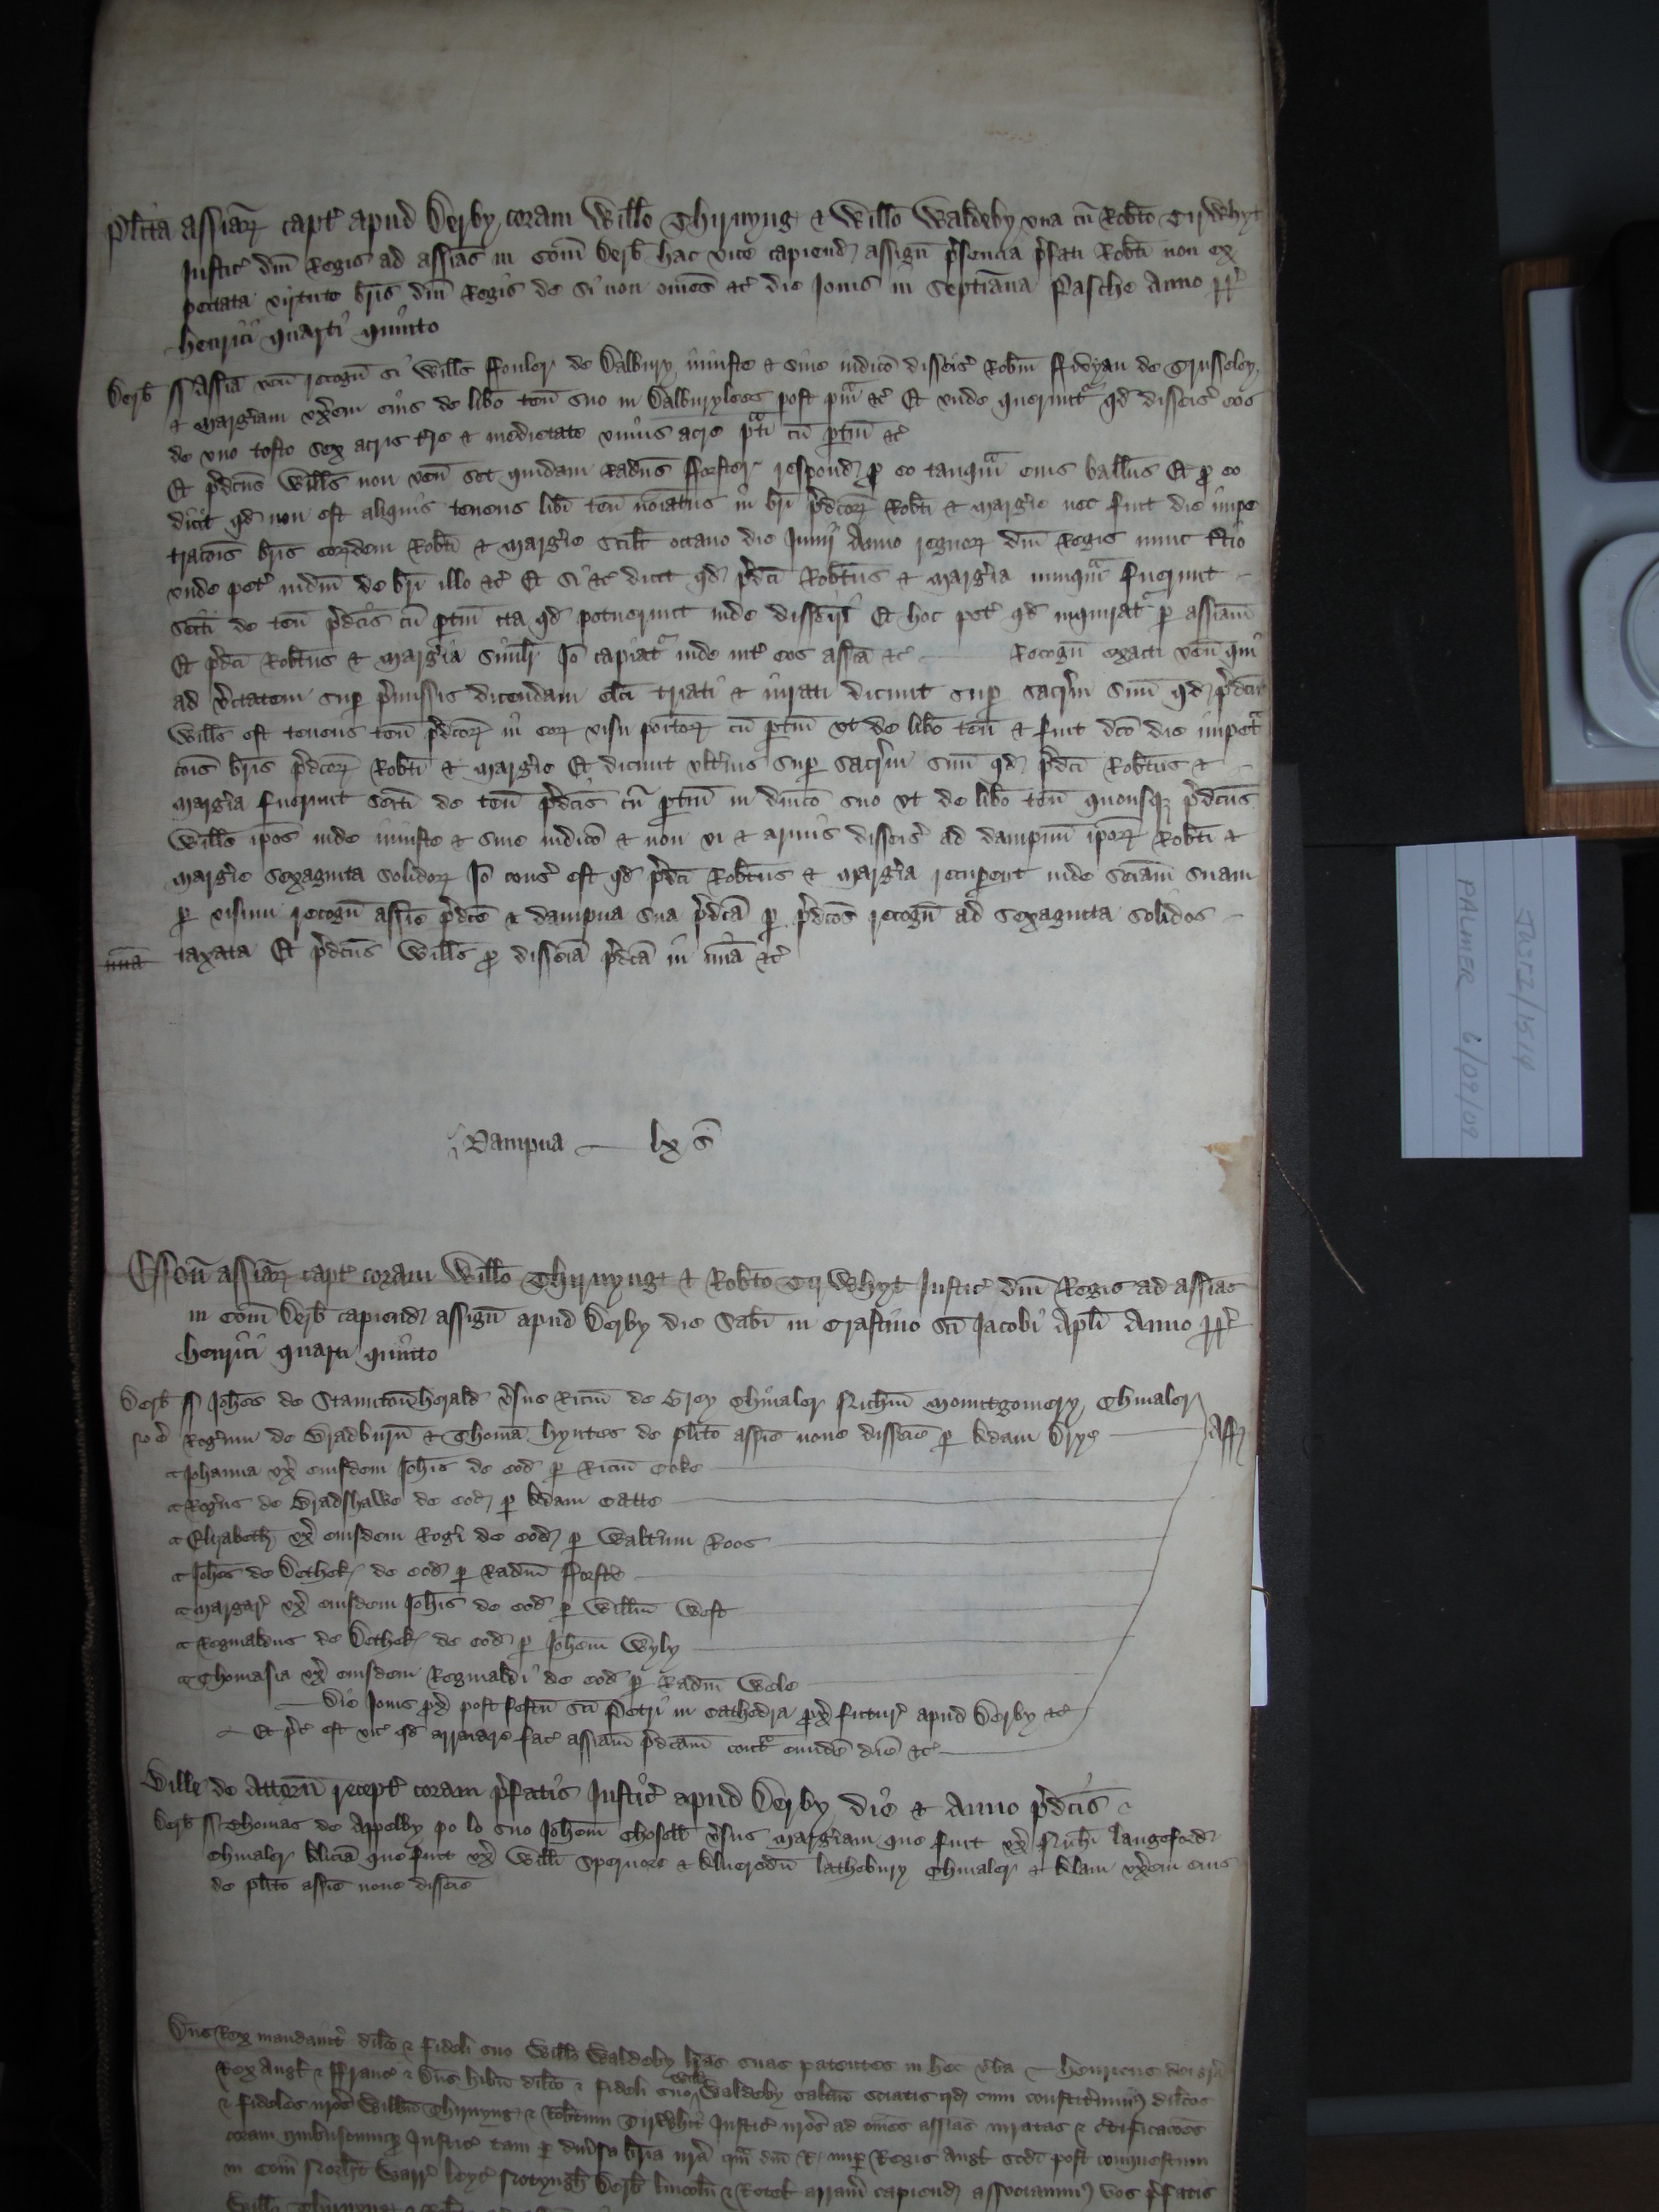 Pl̄ita assiaꝝ capt̄ apud Derby coram Will̄o Thirnyng & Will̄o Waldeby vna cū Rob̄to Tirwhyt
Justic̄ dn̄i Regis ad assīas in Com̄ Derb̄ hac vice capiend̄ assign̄ p̄sencia p̄fati Rob̄ti non ex
pectata virtute br̄is dn̄i Regis de Si non om̄es &c̄ die Jouis in Septiāna Pasche Anno rr̄
Henrici quarti quinto
Derb̄ ss Assīa ven̄ recogn̄ si Will̄s ffouler de Dalbury iniuste & sine iudic̄o disseis̄ Rob̄m de Trusseley
& Marḡiam vx̄em eius de lib̄o ten̄ suo in Dalburylees post p̄mā &c̄ Et vnde queruntʳ qd̄ disseis̄ eos
de vno tofto sex acris t̄re & medietate vnius acre p̄ti cū p̱tin̄ &c̄
Et p̄dc̄us Will̄s non ven̄ set quidam Rad̄us fforster respond̄ ꝑ eo tanquā eius ball̄us Et ꝑ eo
dicit qd̄ non est aliquis tenens lib̄i ten̄ no̅iatus in br̄i p̄dc̄oꝝ Rob̄ti & Marḡie nec fuit die impe
trac̄ois br̄is eoꝝdem Rob̄ti & Marḡie scil̄t octauo die Junij Anno regnoꝝ dn̄i Regis nunc t̄cio
vnde pet̄ iudm̄ de br̄i illo &c̄ Et si &c̄ dicit qd̄ p̄dc̄i Rob̄tus & Marḡia nunquā fuerunt
seiti de ten̄ p̄dc̄is cū p̱tin̄ ita qd̄ potuerunt inde disseisiri Et hoc pet̄ qd̄ inquiratʳ p̱ assiām
Et p̄dc̄i Rob̄tus & Marḡia simil̄r Jō capiatʳ inde int̄ eos assīa &c̄ Recogn̄ exacti ven̄ qui
ad v̄itatem sup̱ p̄missis dicendam el̄ci triati & iurati dicunt sup̱ sacr̄m suū qd̄ p̄dc̄us
Will̄s est tenens ten̄ p̄dc̄oꝝ in eoꝝ visu poitoꝝ cū p̱tin̄ vt de lib̄o ten̄ & fuit dc̄o die impetʳ
c̄ois br̄is p̄dc̄oꝝ Rob̄ti & Marḡie Et dicunt vlt̄ius sup̱ sacr̄m suū qd̄ p̄dc̄i Rob̄tus &
Marḡia fuerunt seiti de ten̄ p̄dc̄is cū p̱tin̄ in dn̄ico suo vt de lib̄o ten̄ quousqꝫ p̄dc̄us
Will̄s ip̄os inde iniuste & sine iudic̄o & non vi & armis disseis̄ ad dampnū ip̄oꝝ Rob̄ti &
Marḡie sexaginta solidoꝝ Jō cons̄ est qd̄ p̄dc̄i Rob̄tus & Marḡia recup̱ent inde sei̅am suam
p̱ visum recogn̄ assīe p̄dc̄e & dampna sua p̄dc̄a p̱ p̄dc̄os recogn̄ ad sexaginta solidos
mīa taxata Et p̄dc̄us Will̄s ꝑ disseīa p̄dc̄a in mīa &c̄
Dampna lx s̄
Esson̄ assiaꝝ capt̄ coram Will̄o Thirnyng & Rob̄to Tirwhyt Justic̄ dn̄i Regis ad assīas
in Com̄ Derb̄ capiend̄ assign̄ apud Derby die Sab̄i in Crastino Sc̄i Jacobi Apl̄i Anno rr̄
Henrici quarti quinto
Derb̄ ss Joh̄es de v̄sus Ric̄m de Grey Chiualer Nich̄m Mountgomery Chiualer
Roḡum de Bradburn̄ & Thomā Hyntes de pl̄ito assīe noue disseīe p̱ Adam Drye Aff̄
Johanna vx̄ eiusdem Joh̄is de eod̄ p̱ Ric̄m Coke
Roḡus de Bradshawe de eod̄ p̱ Adam Catte
Elizabeth vx̄ eiusdem Rogi de eod̄ p̱ Walt̄um Roos
Joh̄es de Dethek de eod̄ p̱ Rad̄m fforst̄
Margar̄ vx̄ eiusdem Joh̄is de eod̄ p̱ Will̄m West
Reginaldus de Dethek de eod̄ p̱ Joh̄em Wyly
Thomasia vx̄ eiusdem Reginaldi de eod̄ p̱ Rad̄m Wele
Die Jouis px̄ post festū Sc̄i Petri in Cathedra px̄ futur̄ apud Derby &c̄
Et p̄c̄ est vic̄ qd̄ arraiare fac̄ assīam p̄dc̄am contʳ eundē diē &c̄
Wille de Attorn̄ recept̄ coram p̄fatis Justic̄ apud Derby die & Anno p̄dc̄is
Derb̄ ss Thomas de Appelby po lo suo Joh̄em v̄sus Marḡiam que fuit vx̄ Nich̄i Langeford
Chiualer Aliciā que fuit vx̄ Will̄i Spernore & Alueredū Lathebury Chiualer & vx̄em eius
de pl̄ito assīe noue disseīe
Dn̄s Rex mandauit dil̄co & fideli suo Will̄o Waldeby l̄ras suas patentes in hec v̄ba Henricus dei grā
Rex Angl̄ & ffranc̄ & Dn̄s Hib̄n dil̄co & fideli suo Will̄o Waldeby salt̄m Sciatis qd̄ cum constit̄uimus dil̄cos
& fideles nr̄os Will̄m Thirnyng & Rob̄tum Tirwhit Justic̄ nr̄os ad om̄es assīas iuratas & c̄tificac̄oes
coram quibuscumqꝫ Justic̄ tam p̱ diu̅sa br̄ia nr̄a qm̄ dn̄i R. nup̱ Regis Angl̄ sc̄di post conquestum
in Com̄ Norh̄t Warr̄ Leyc̄ Notyngh̄ Derb̄ Lincoln̄ & Rotel̄ arram̄ capiend̄ associauim̄ vos p̄fatis
Will̄o Thirnyng &
JUST1/1514
PALMER 6/02/09